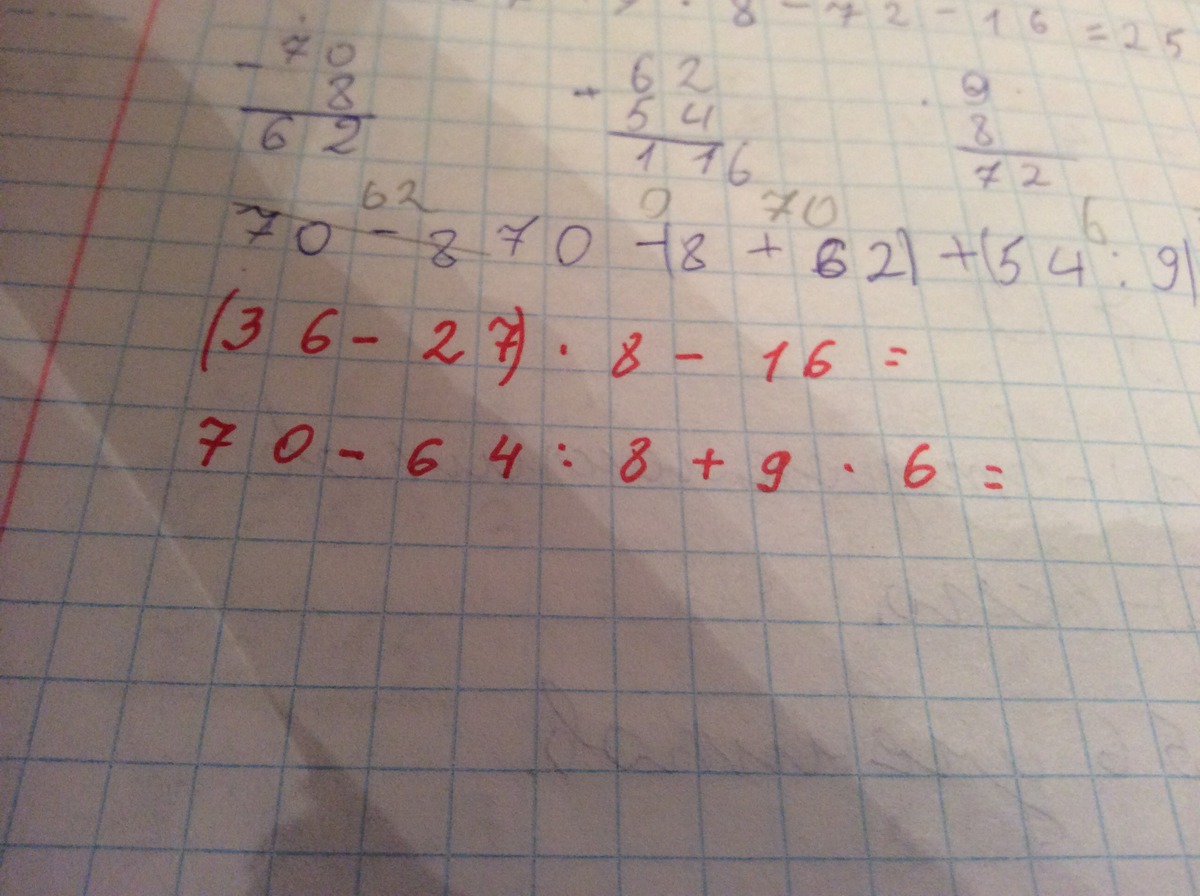 8 - 72 - 16 = 25
- 70 + 62 · 9
8 54 8
62 116 72
62 0 70 6
70 - 8 70 - (8 + 62) + (54 : 9)
(36 - 27) · 8 - 16 =
70 - 64 : 8 + 9 · 6 =